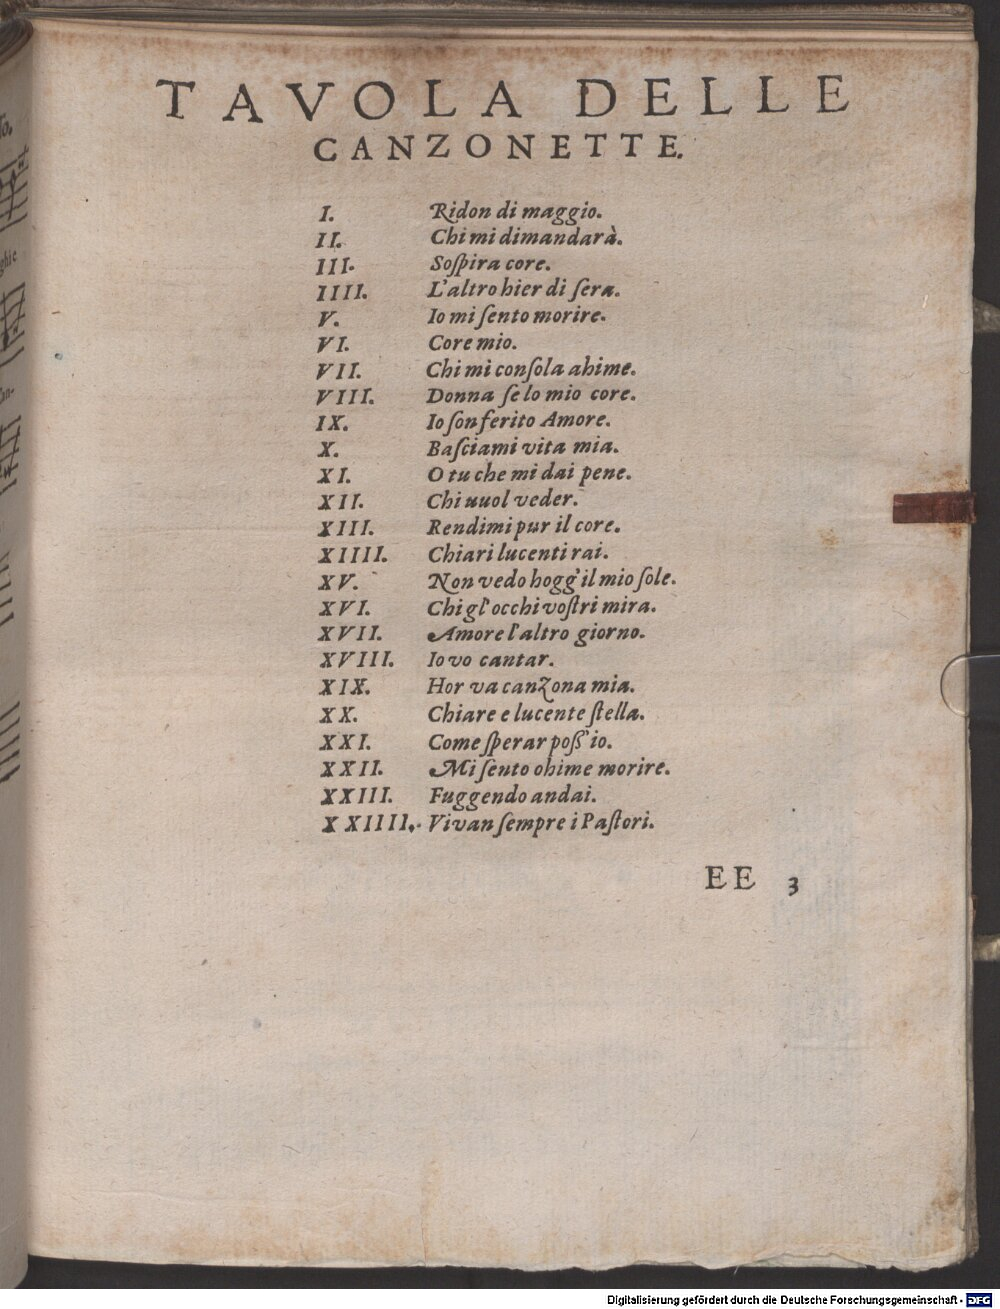 TAVOLA DELLE
CANZONETTE.
I. Ridon di maggio.
II. Chi mi dimandarà.
III. Soſpira core.
IIII. L'altro hier di ſera.
V. Io mi ſento morire.
VI. Core mio.
VII. Chi mi conſola ahime.
VIII. Donna ſe lo mio core.
IX. Io ſon ferito Amore.
X. Baſciami vita mia.
XI. O tu che mi dai pene.
XII. Chi uuol veder.
XIII. Rendimi pur il core.
XIIII. Chiari lucenti rai.
XV. Non vedo hogg'il mio ſole.
XVI. Chi gl'occhi voſtri mira.
XVII. Amore l'altro giorno.
XVIII. Io vo cantar.
XIX. Hor va canzona mia.
XX. Chiare e lucente ſtella.
XXI. Come ſperar poß'io.
XXII. Mi ſento ohime morire.
XXIII. Fuggendo andai.
XXIIII. Vivan ſempre i Paſtori.
EE 3
Digitalisierung gefördert durch die Deutsche Forschungsgemeinschaft - DFG